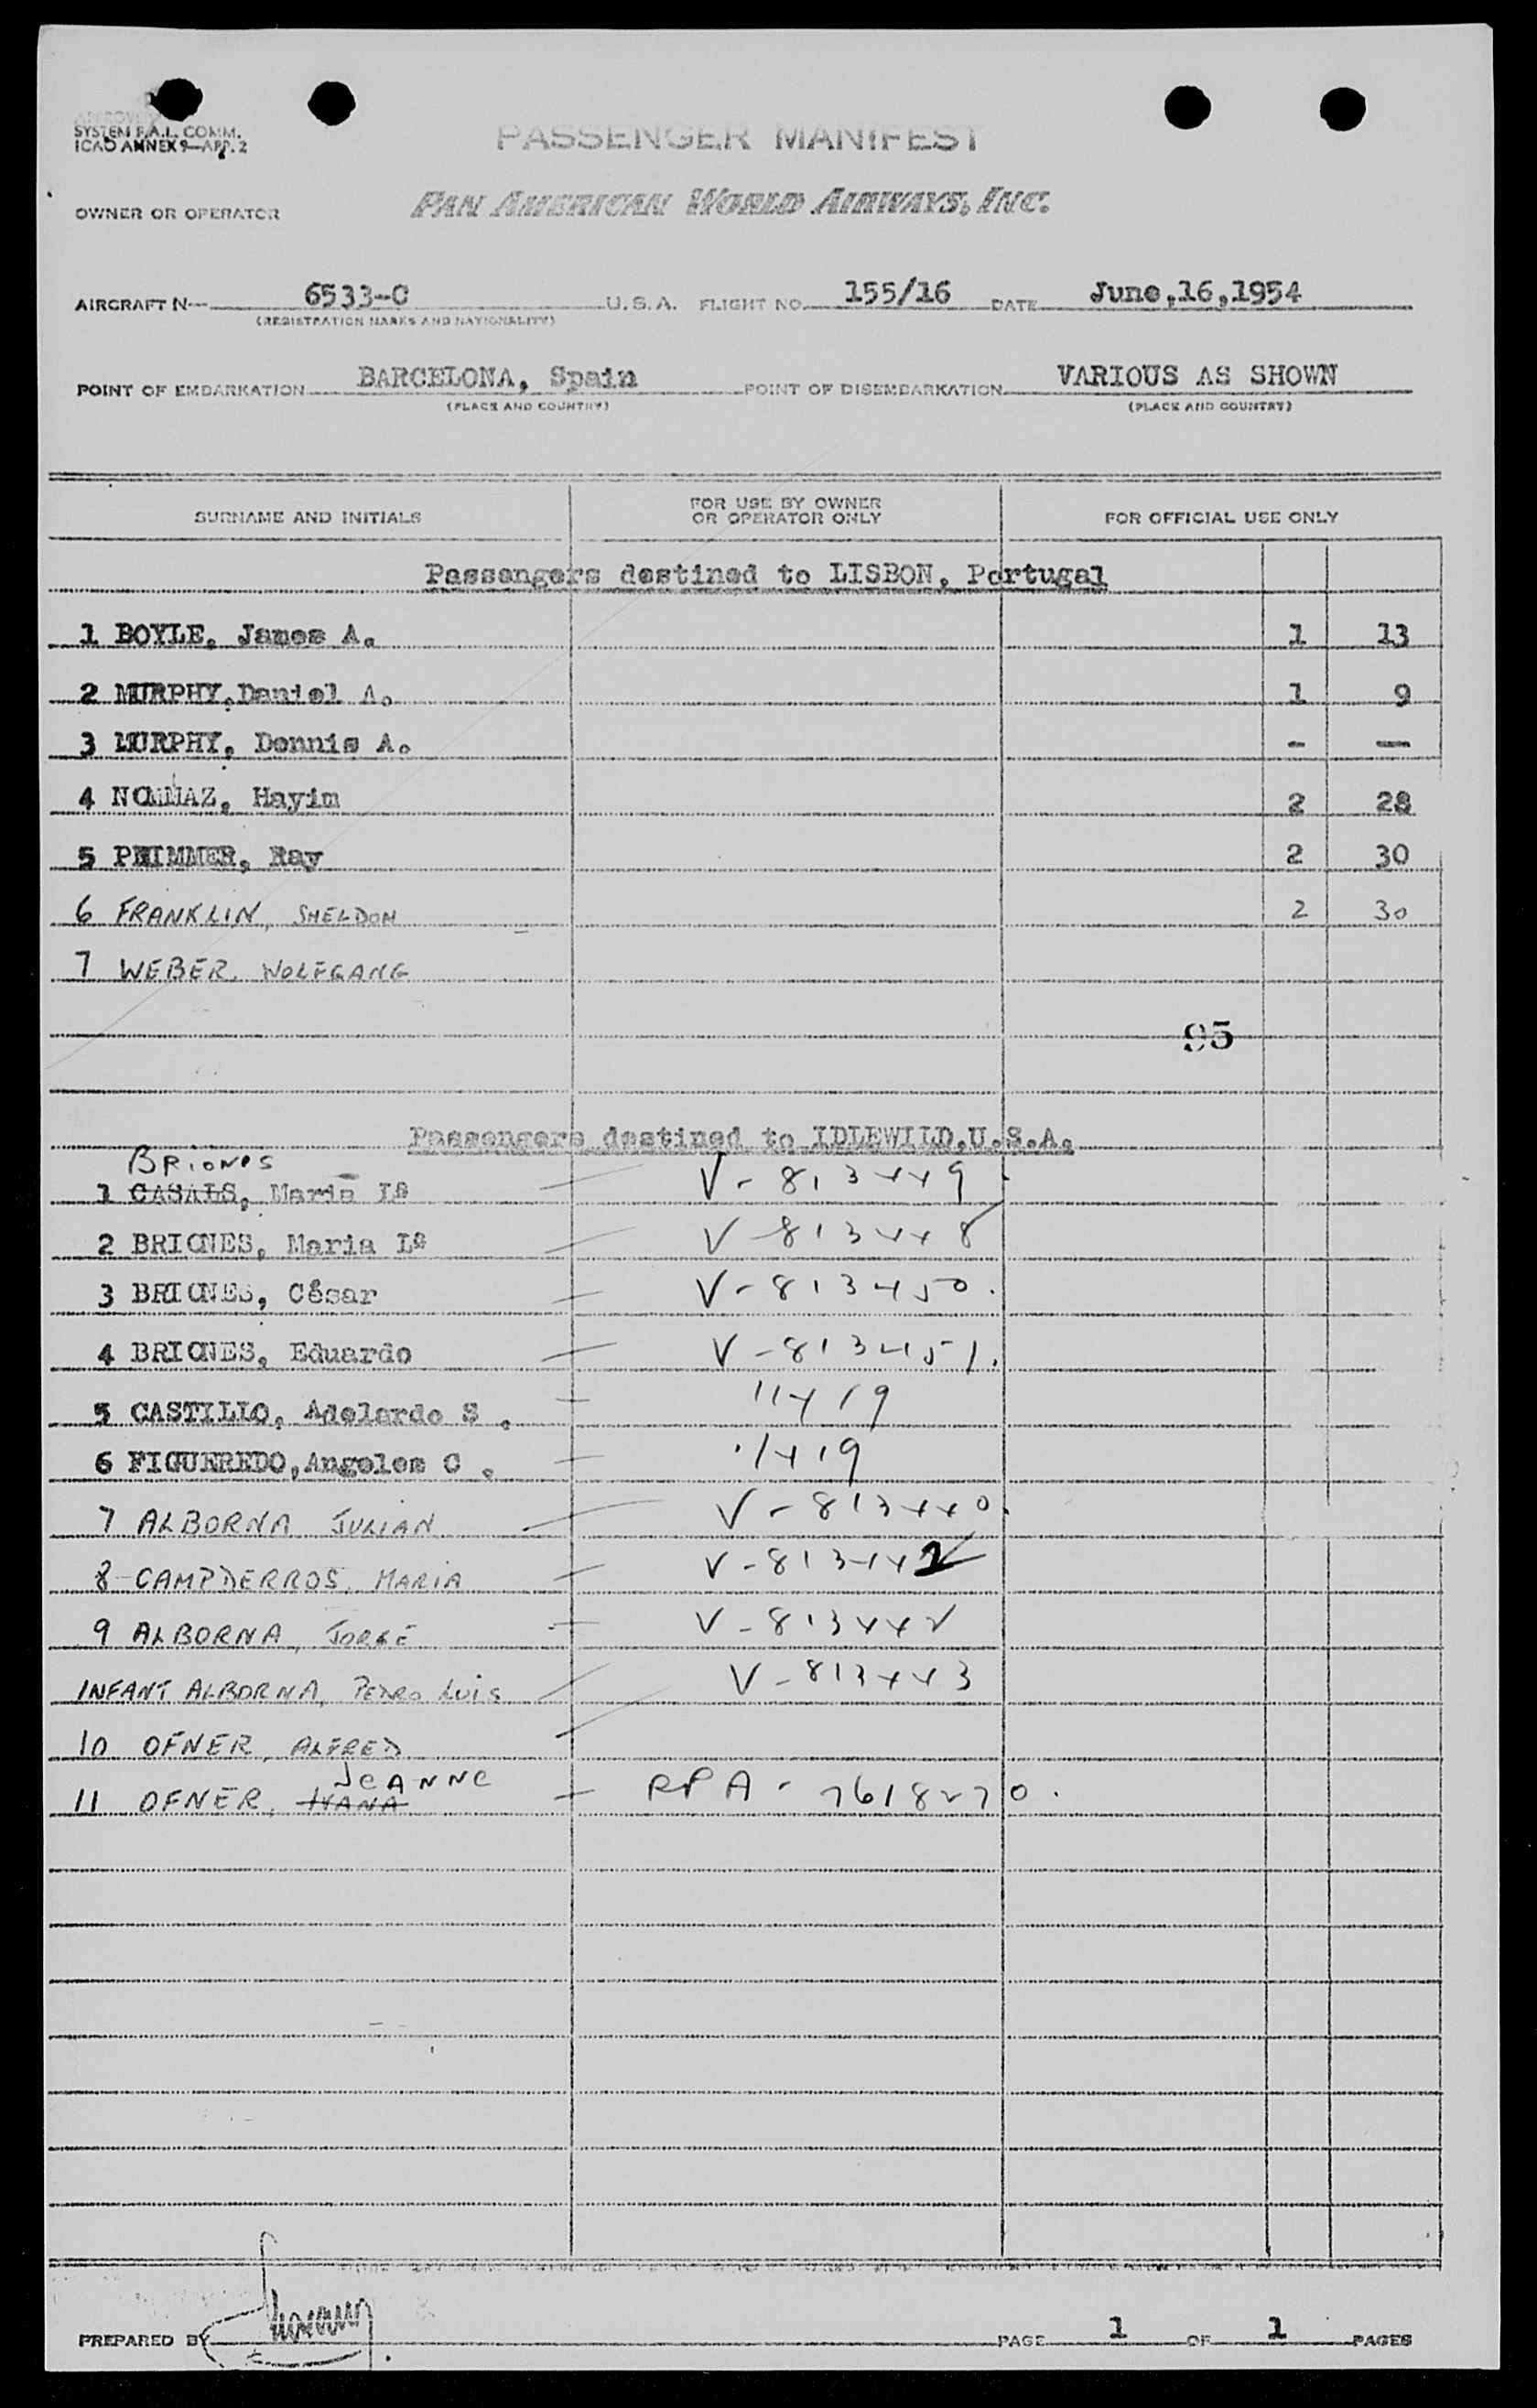 APPROVED
SYSTEM F.A.L. COMM.
ICAO ANNEX 9—APP. 2
PASSENGER MANIFEST
OWNER OR OPERATOR PAN AMERICAN WORLD AIRWAYS, INC.
AIRCRAFT N— 6533-C U.S.A. FLIGHT NO. 155/16 DATE June,16,1954
(REGISTRATION MARKS AND NATIONALITY)
POINT OF EMBARKATION BARCELONA, Spain POINT OF DISEMBARKATION VARIOUS AS SHOWN
(PLACE AND COUNTRY) (PLACE AND COUNTRY)
SURNAME AND INITIALS FOR USE BY OWNER OR OPERATOR ONLY FOR OFFICIAL USE ONLY
Passengers destined to LISBON, Portugal
1 BOYLE, James A. 1 13
2 MURPHY,Daniel A. 1 9
3 MURPHY, Dennis A. - —
4 NOMMAZ, Hayim 2 28
5 PRIMMER, Ray 2 30
6 FRANKLIN, SHELDON 2 30
7 WEBER, WOLFGANG
95
Passengers destined to IDLEWILD,U.S.A.
BRIONES
1 CASALS, Maria Lª V-813449
2 BRIONES, Maria Lª V-813448
3 BRIONES, César V-813450.
4 BRIONES, Eduardo V-813451.
5 CASTILLO, Adelardo S. 11419
6 FIGUEREDO,Angeles C. 1419
7 ALBORNA JULIAN V-813440.
8 CAMPDERROS, MARIA V-813442
9 ALBORNA, JORGE V-813442
INFANT ALBORNA, PEDRO LUIS V-813443
10 OFNER, ALFRED
JEANNE
11 OFNER, IVANA — RPA- 7618270.
PREPARED BY PAGE 1 OF 1 PAGES